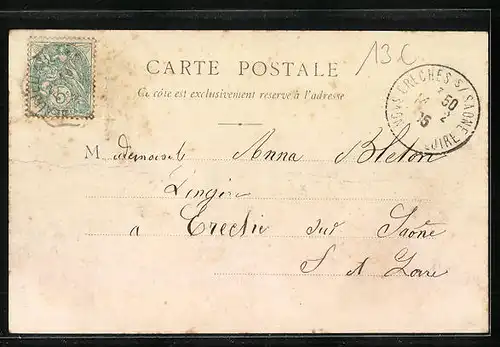 13 C
CARTE POSTALE
Ce côté est exclusivement réservé à l'adresse
CRÈCHES S/ SAÔNE
50
2
LOIRE
5
Mademoisele Anna Bleton
Lingère
a Creche sur Saône
S et Loire